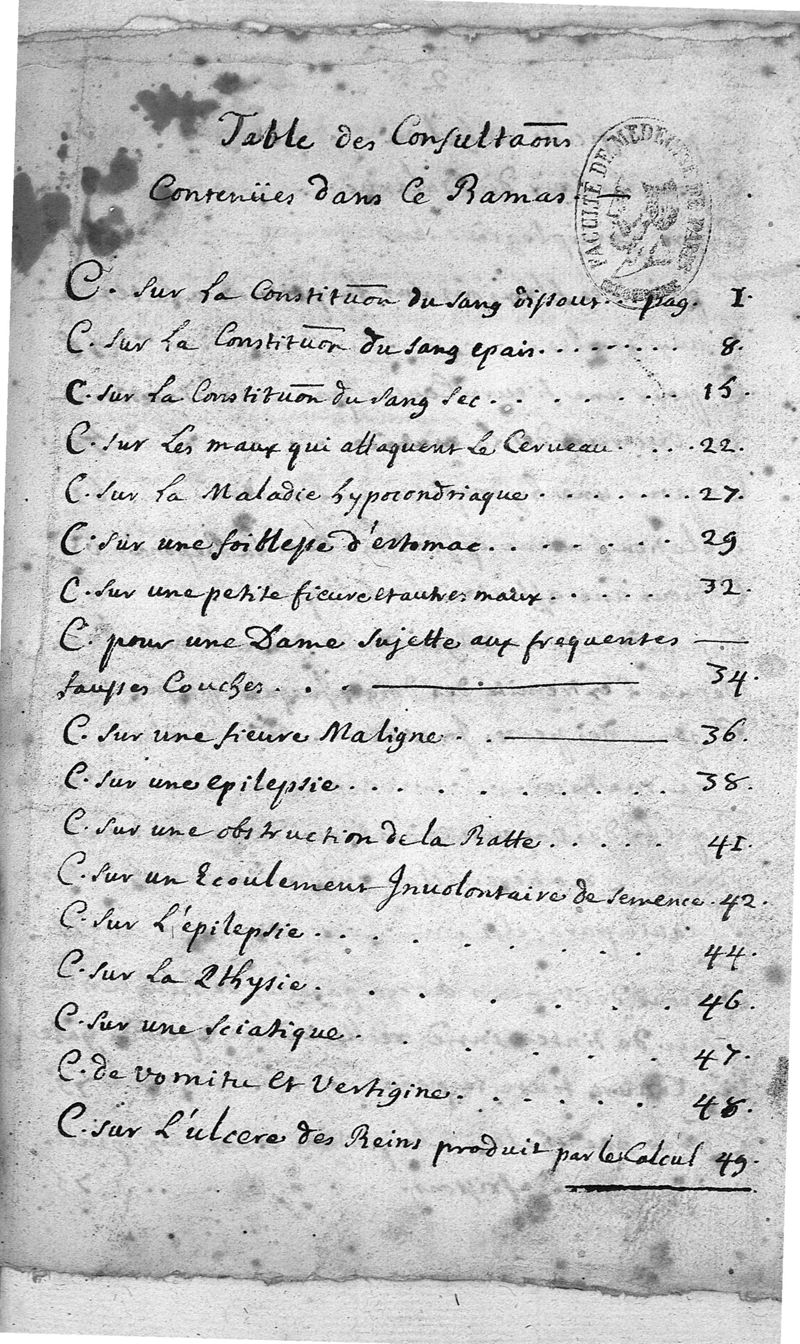 Table des Consultaōns
Contenües dans Ce Ramas
FACULTÉ DE MEDECINE DE PARIS
C. sur La Constituōn du sang dissout... pag. 1.
C. sur La Constituōn du sang epais......... 8.
C. sur La Constituōn du sang sec........ 15.
C. sur Les maux qui attaquent Le Cerveau.... 22.
C. sur La Maladie hypocondriaque....... 27.
C. sur une foiblesse d'estomac........ 29
C. sur une petite fieure et autres maux...... 32.
C. pour une Dame sujette aux frequentes —
fausses Couches... — 34.
C. sur une fieure Maligne.. — 36.
C. sur une epilepsie......... 38.
C. sur une obstruction de la Ratte..... 41.
C. sur un Ecoulement Jnuolontaire de semence. 42.
C. sur L'épilepsie........ 44.
C. sur La Pthysie....... 46.
C. sur une sciatique....... 47.
C. de vomitu et vertigine...... 48.
C. sur L'ulcere des Reins produit par le Calcul 49.